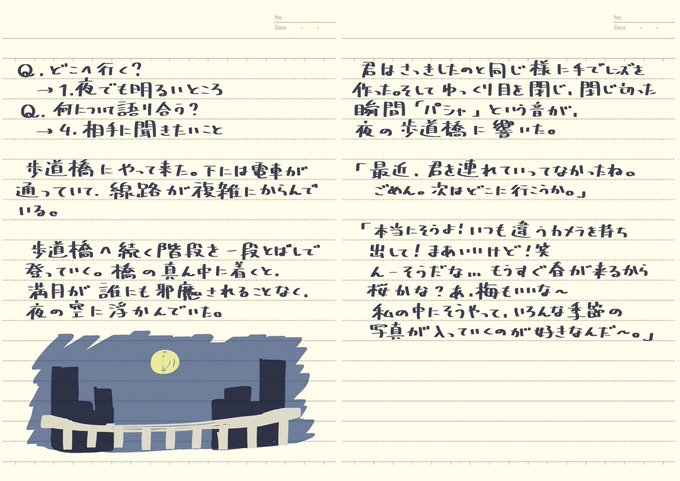 No.
Date ・ ・
Q. どこへ行く?
→ 1. 夜でも明るいところ
Q. 何について語り合う?
→ 4. 相手に聞きたいこと
歩道橋にやって来た。下には電車が
通っていて、線路が複雑にからんで
いる。
歩道橋へ続く階段を一段とばしで
登っていく。橋の真ん中に着くと、
満月が誰にも邪魔されることなく、
夜の空に浮かんでいた。
No.
Date ・ ・
君はさっきしたのと同じ様に手でレンズを
作った。そしてゆっくり目を閉じ、閉じ切った
瞬間「パシャ」という音が、
夜の歩道橋に響いた。
「最近、君を連れていってなかったね。
ごめん。次はどこに行こうか。」
「本当にそうよ!いつも違うカメラを持ち
出して!まあいいけど!笑
んーそうだな... もうすぐ春が来るから
桜かな?あ、梅もいいな〜
私の中にそうやって、いろんな季節の
写真が入っていくのが好きなんだ〜。」